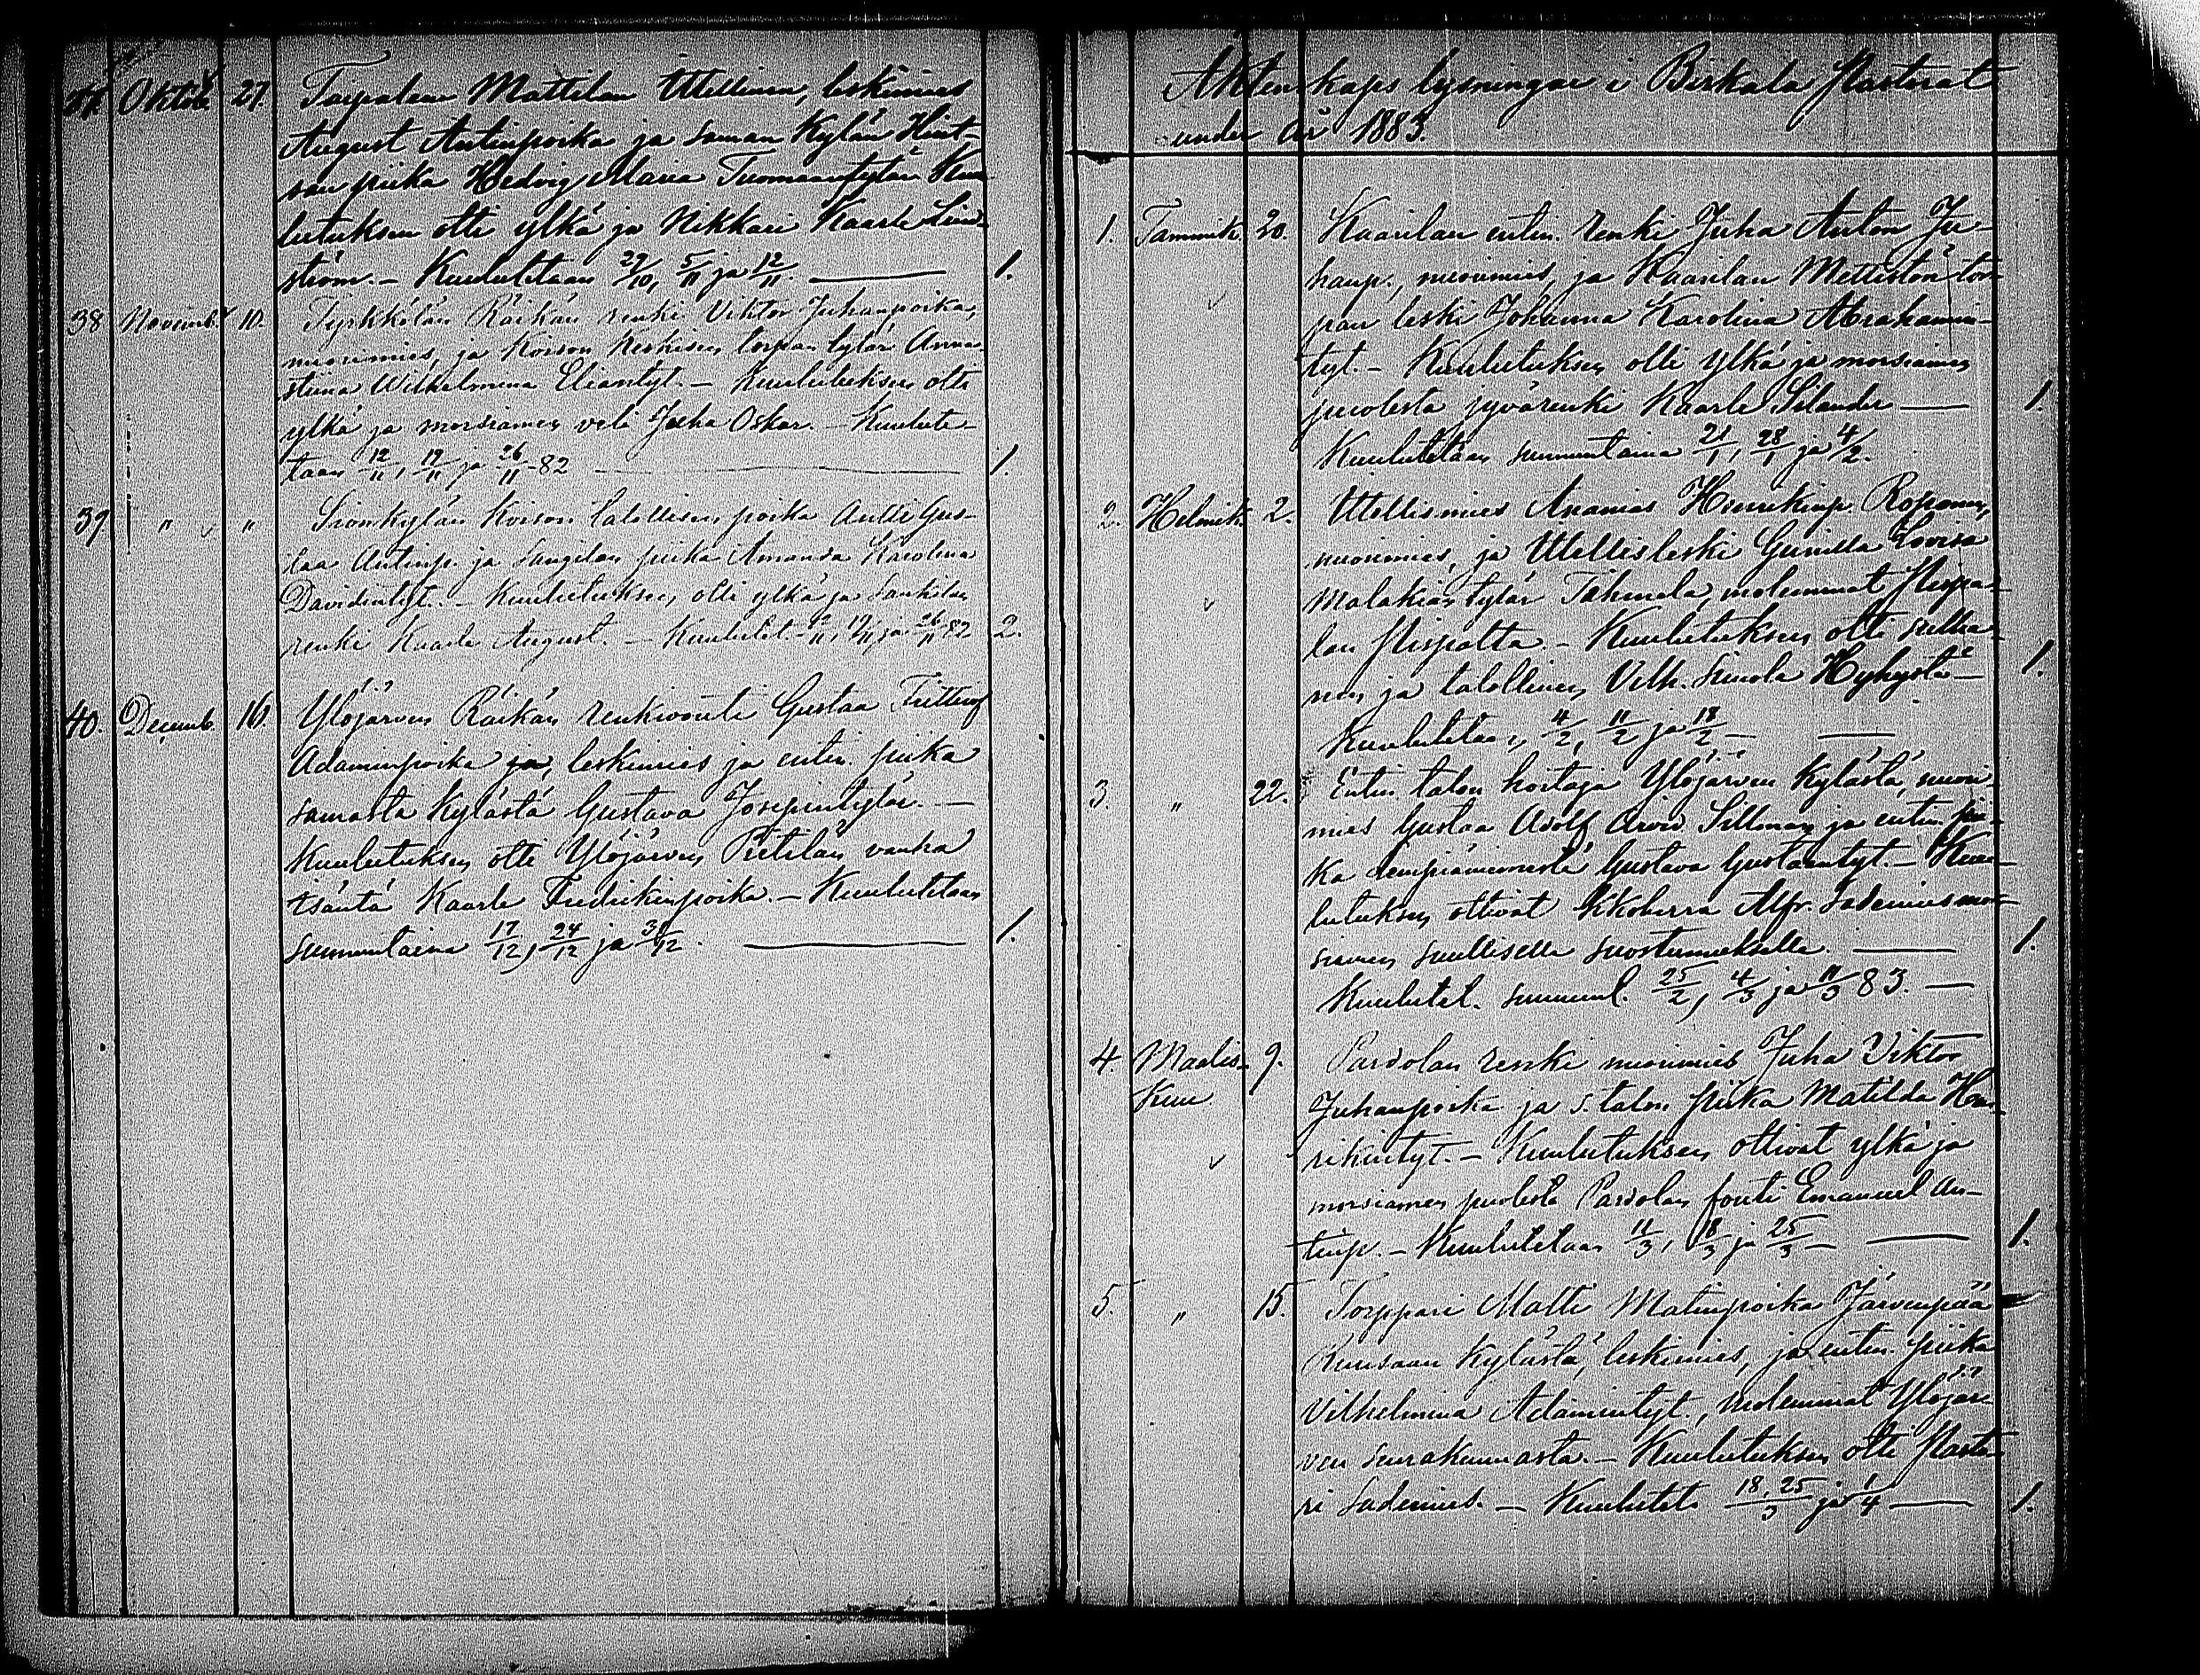 37. Oktob. 27. Torpalan Mattilan Itellinen, leskimies
August Antinpoika ja saman Kylän Hint-
san piika Hedvig Maria Tuomaantytär Kuu-
lutuksen otti ylkä ja Nikkari Kaarle Lind-
ström. – Kuulutetaan 29/10, 5/11 ja 12/11. — 1.
38 Novemb. 10. Tyrkkölän Räikän renki Viktor Juhanpoika,
nuorimies, ja Koison Keskisen torpan tytär Anna
Stiina Wilhelmina Eliantyt. – Kuulutuksen otti
ylkä ja morsiamen veli Juha Oskar. – Kuulute-
taan 12/11, 19/11 ja 26/11 -82 — 1.
39 " " Siomkylän Koison talollisen poika Antti Gus-
taa Antinp. ja piika Amanda Karolina
Davidintyt. – Kuulutuksen otti ylkä ja
renki Kaarle August. – Kuulutet. 12/11, 19/11 ja 26/11 82 2.
40. Decemb. 16. Ylöjärven Räikän renkivouti Gustaa
Adaminpoika ja, leskimies ja entin. piika
samasta Kylästä Gustava Josepintytär. —
Kuulutuksen otti Ylöjärven Pietilän vanha
isäntä Kaarle Fredrikinpoika. – Kuulutetaan
sunnuntaina 17/12, 24/12 ja 31/12. — 1.
Äktenskaps lysningar i Birkala Pastorat
under år 1883.
1. Tammik. 20. Kaarilan entin. renki Juha Anton Ju-
hanp., nuorimies, ja Kaarilan Mettistön tor-
pan leski Johanna Karolina Abrahamin-
tyt. – Kuulutuksen otti ylkä ja morsiamen
puolesta jyvärenki Kaarle Silander — 1.
Kuulutetaan sunnuntaina 21/1, 28/1 ja 4/2.
2. Helmik. 2. Itellismies Ananias Henrikinp. Roponen,
nuorimies, ja Itellisleski Gunilla Lovisa
Malakian tytär Tähmelä, molemmat Pispa-
lan Pispalta. – Kuulutuksen otti sulha-
nen ja talollinen Vilh. Simola Hyhystä – 1.
Kuulutetaan 4/2, 11/2 ja 18/2 – —
3. " 22. Entin. talon hoitaja Ylöjärven Kylästä, nuori-
mies Gustaa Adolf Arvid Sillman ja entin. pii-
ka Lempiäniemestä Gustava Gustaantyt. – Kuu-
lutuksen ottivat Kkoherra Alfr. Sadenius mor-
siamen suullisella suostumuksella. — 1.
Kuulutet. sunnunt. 25/2, 4/3 ja 11/3 83. —
4. Maalis- 9. Parvolan renki nuorimies Juha Viktor
Kuu Juhanpoika ja s. talon piika Matilda Hen-
rikintyt. – Kuulutuksen ottivat ylkä ja
morsiamen puolesta Parvolan fouti Emanuel An-
tinp. – Kuulutetaan 11/3, 18/3 ja 25/3 – — 1.
5. " 15. Torppari Matti Matinpoika Järvenpää
Kylästä, leskimies, ja entin. piika
Vilhelmina Adamintyt., molemmat Ylöjär-
ven seurakunnasta. – Kuulutuksen otti Pasto-
ri Sadenius. – Kuulutet. 18, 25/3 ja 1/4 — 1.